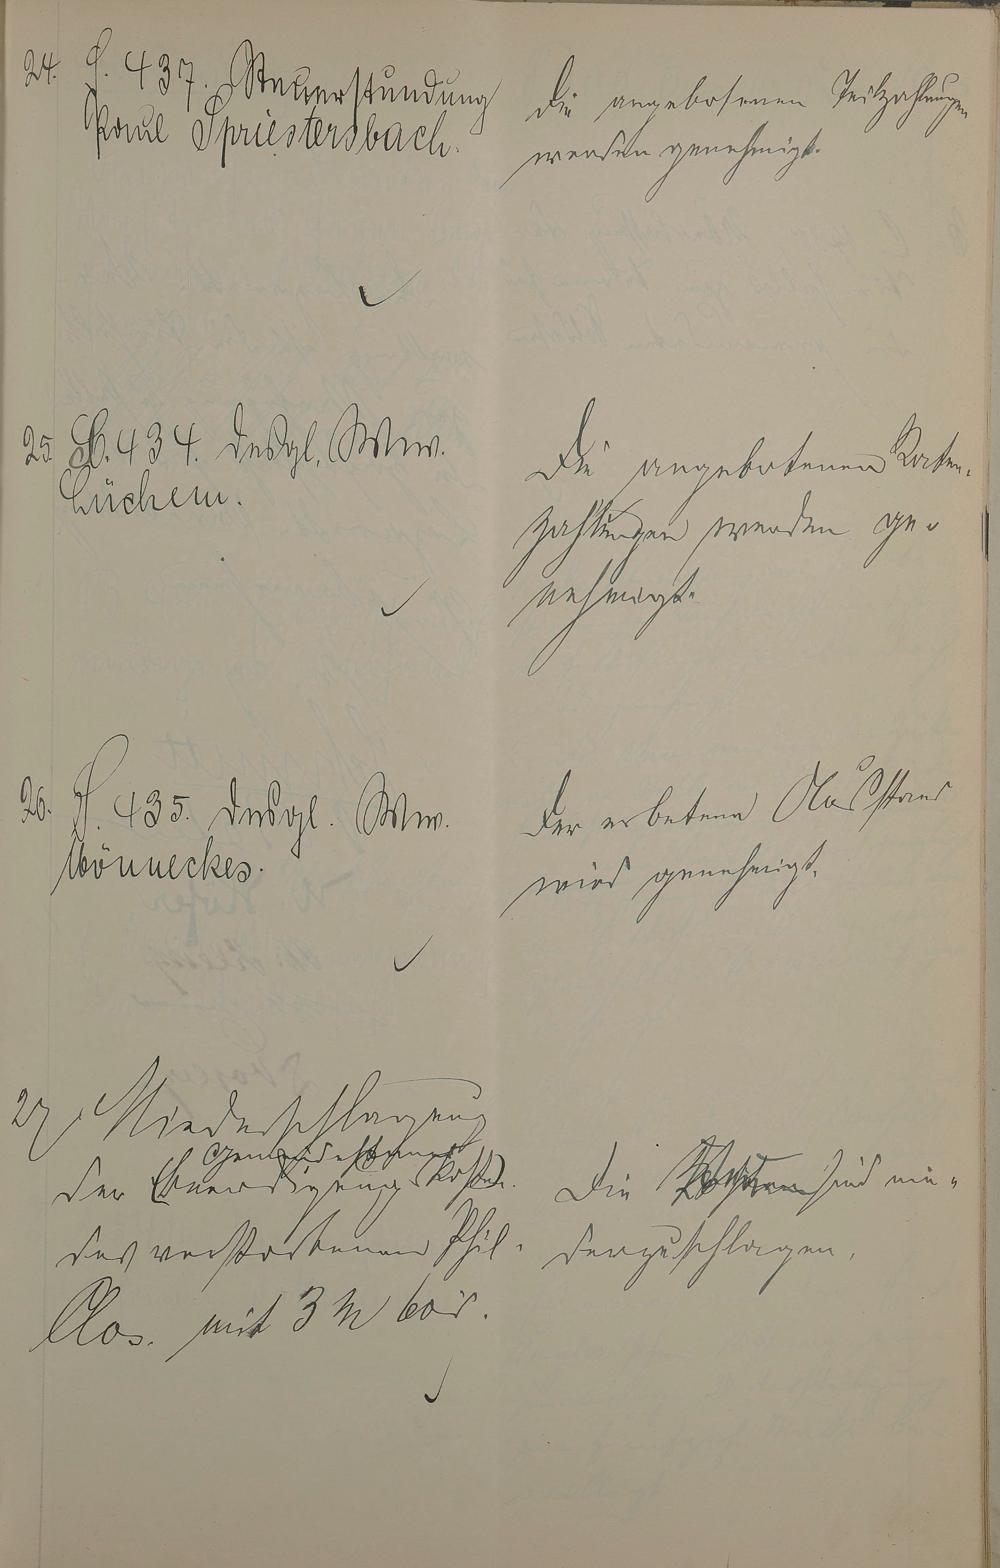 24. S. 437. Steuerstundung
Paul Spriestersbach.
Die angebotenen Teilzahlungen
werden genehmigt.
25. S. 434. Desgl. Wwe.
Lüchem.
Die angebotenen Raten-
zahlungen werden ge-
nehmigt.
26. S. 435. Desgl. Wwe.
Mönneckes.
Der erbetene Ausstand
wird genehmigt.
27. Niederschlagung
der Kosten.
des verstorbenen Phil.
Clos. mit 3 M
Die sind nie-
derzuschlagen.